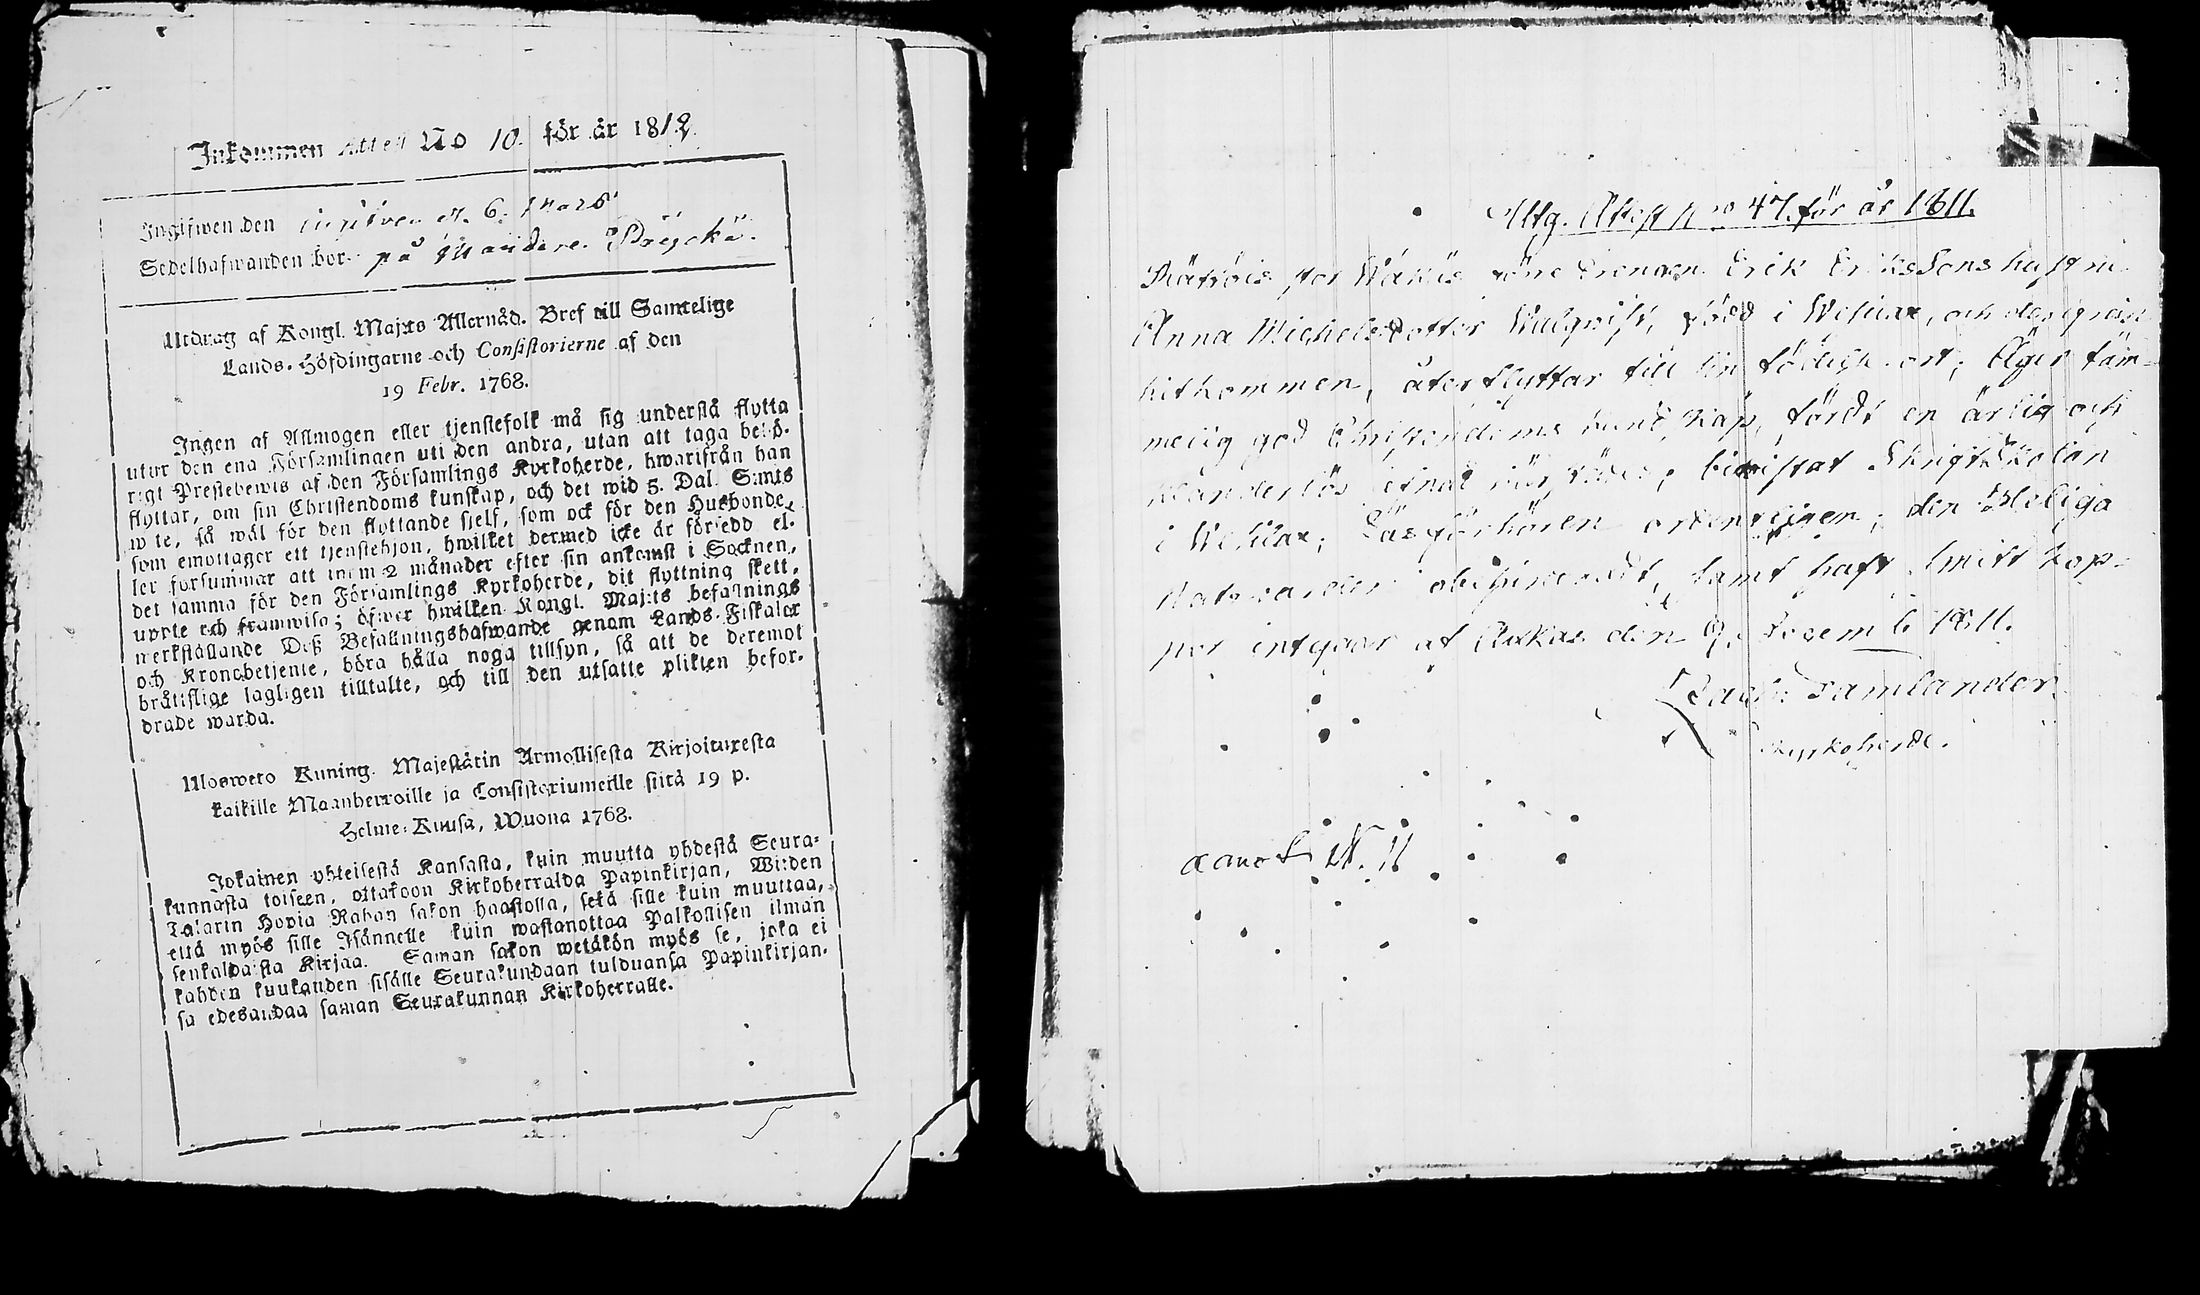 Inkommen Attest No 10. för år 1812.
Ingifwen den ingifven d. 6. Mars
Sedelhafwanden bor på
Utdrag af Kongl. Majxts Allernåd. Bref till Samtelige
Lands-Höfdingarne och Consistorierne af den
19 Febr. 1768.
Ingen af Allmogen eller tjenstefolk må sig understå flytta
utur den ena Församlingen uti den andra, utan att taga behö-
rigt Prestebewis af den Församlings Kyrkoherde, hwarifrån han
flyttar, om sin Christendoms kunskap, och det wid 5. Dal. S:mts
wite, så wäl för den flyttande sjelf, som ock för den Husbonde,
som emottager ett tjenstehjon, hwilket dermed icke är försedd el-
ler försummar att inom 2 månader efter sin ankomst i Socknen,
det samma för den Församlings Kyrkoherde, dit flyttning skett,
uppte och framwisa; öfwer hwilken Kongl. Maj:ts befallnings
werkställande Deß Befallningshafwande genom Lands-Fiskaler
och Kronobetjente, böra hålla noga tillsyn, så att de deremot
bråtislige lagligen tilltalte, och till den utsatte plikten befor-
drade warda.
Ulosweto Kuning. Majestätin Armollisesta Kirjoituxesta
kaikille Maanherroille ja Consistoriumeille siitä 19 p.
Helme-Kuusa, Wuona 1768.
Jokainen yhteisestä Kansasta, kuin muutta yhdestä Seura-
kunnasta toiseen, ottakoon Kirkoherralda Papinkirjan, Wiiden
Talarin Hopia Rahan sakon haastolla, sekä sille kuin muuttaa,
että myös sille Isännelle kuin wastanottaa Palkollisen ilman
senkaldaista Kirjaa. Saman sakon wetäkön myös se, joka ei
kahden kuukauden sisälle Seurakundaan tulduansa Papinkirjan-
sa edesandaa saman Seurakunnan Kirkoherralle.
Utg. Attest No 47. för år 1811.
Erik Erikssons hustru
Anna Michelsdotter Walqvist, född i Wesilax, och
hitkommen, återflyttar till sin födelse ort; Äger täm-
melig god Christendoms kunskap, fördt en ärlig och
bewistat Skriftskolan
i Wesilax; Läsförhören ordenteligen; den Heliga
Nattvarden samt haft
af Aukas den 9. Decemb 1811.
Kyrkoherde.